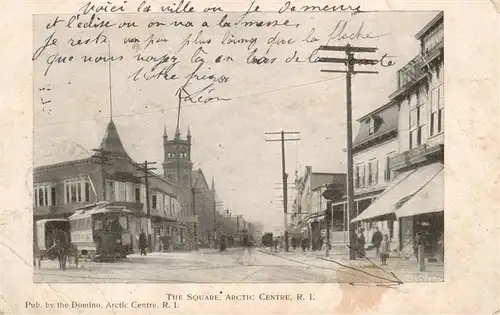 Voici la ville ou je demeure
et l'église ou on va a la messe.
Je reste un peu plus long que la flèche
que vous voyez en bas de la carte
Votre frère
THE SQUARE, ARCTIC CENTRE, R. I.
PUB. by the Domino, Arctic Centre, R. I.